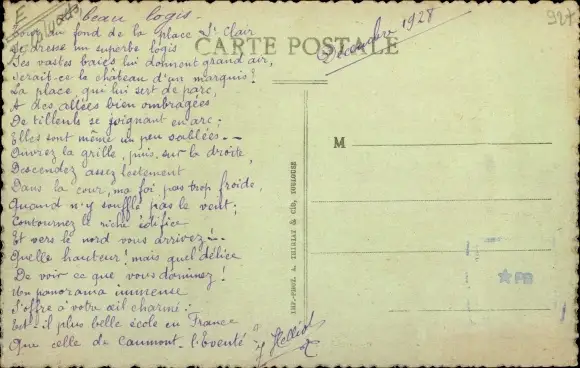 beau logis.
Décembre 1928
927
Tout au fond de la place St Clair
CARTE POSTALE
Se dresse un superbe logis
Ses vastes baies lui donnent grand air,
Serait-ce le château d'un marquis!
La place, qui lui sert de parc,
A des allées bien ombragées
De tilleuls se joignant en arc;
Elles sont même un peu sablées. -
Ouvrez la grille, puis, sur la droite,
Descendez assez lestement
Dans la cour, ma foi, pas trop froide,
Quand n'y souffle pas le vent;
Contournez le riche édifice
Et vers le nord vous arrivez!..
Quelle hauteur! mais quel délice
De voir ce que vous dominez!
Un panorama immense
S'offre à votre œil charmé:
Est-il plus belle école en France
Que celle de Caumont-l'Eventé?
M
PB